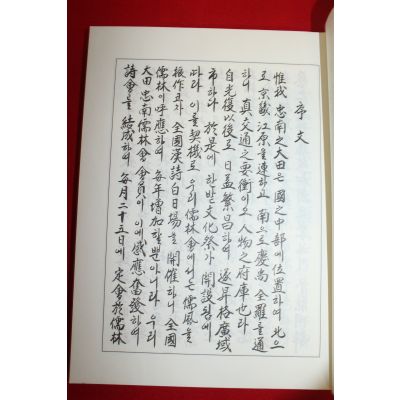 序文
惟我 忠南之大田은 國之中部에 位置하여 北으
로 京畿 江原을 連하고 南으로 慶尙 全羅를 通
하니 眞交通之要衝이요 人物之府庫也라
自光復以後로 日益繁昌하여 遂昇格廣域
市하다 於是에 한밭文化祭가 開設됨에
따라 이를 契機로 우리 儒林會에서는 儒風을
振作코자 全國漢詩白日場을 開催하니 全國
儒林이 呼應하여 每年增加할뿐아니라 우리
大田 忠南儒林會 會員이 이에 感應奮發하여
詩會를 結成하여 每月二十五日에 定會於儒林